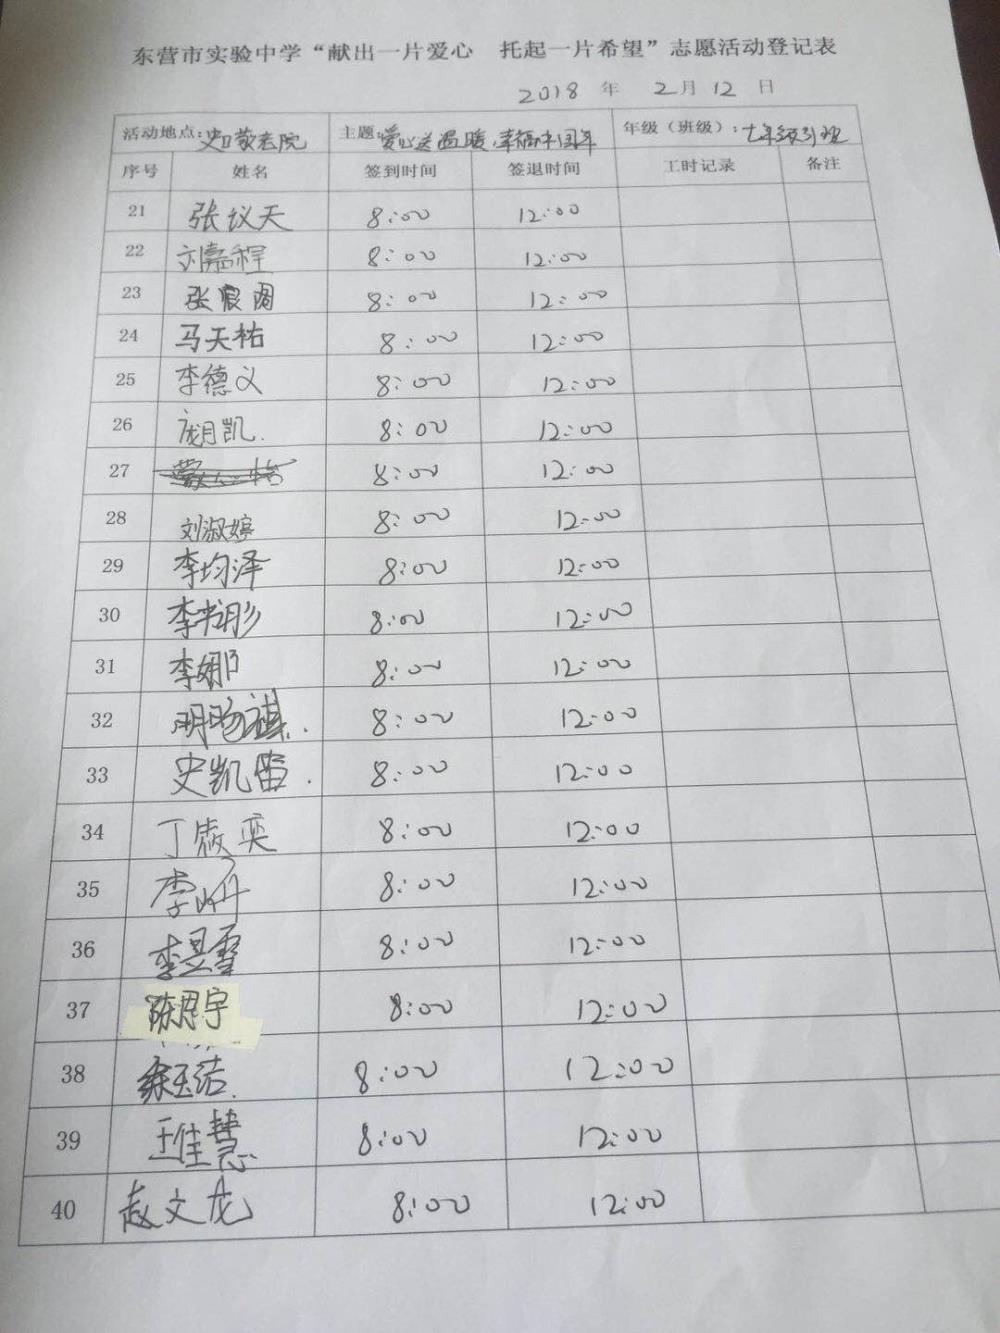 东营市实验中学“献出一片爱心 托起一片希望”志愿活动登记表
2018 年 2月 12 日
活动地点:史口敬老院 主题:爱心送温暖,幸福中国年 年级（班级）:七年级31班
序号 姓名 签到时间 签退时间 工时记录 备注
21 张议天 8:00 12:00
22 刘嘉程 8:00 12:00
23 张宸阁 8:00 12:00
24 马天祐 8:00 12:00
25 李德义 8:00 12:00
26 庞凯 8:00 12:00
27 8:00 12:00
28 刘淑婷 8:00 12:00
29 李均泽 8:00 12:00
30 李书彤 8:00 12:00
31 李娜 8:00 12:00
32 明旸祺. 8:00 12:00
33 史凯雷. 8:00 12:00
34 丁薇奕 8:00 12:00
35 李 8:00 12:00
36 李昱雪 8:00 12:00
37 陈思宇 8:00 12:00
38 徐玉洁. 8:00 12:00
39 王佳慧 8:00 12:00
40 赵文龙 8:00 12:00